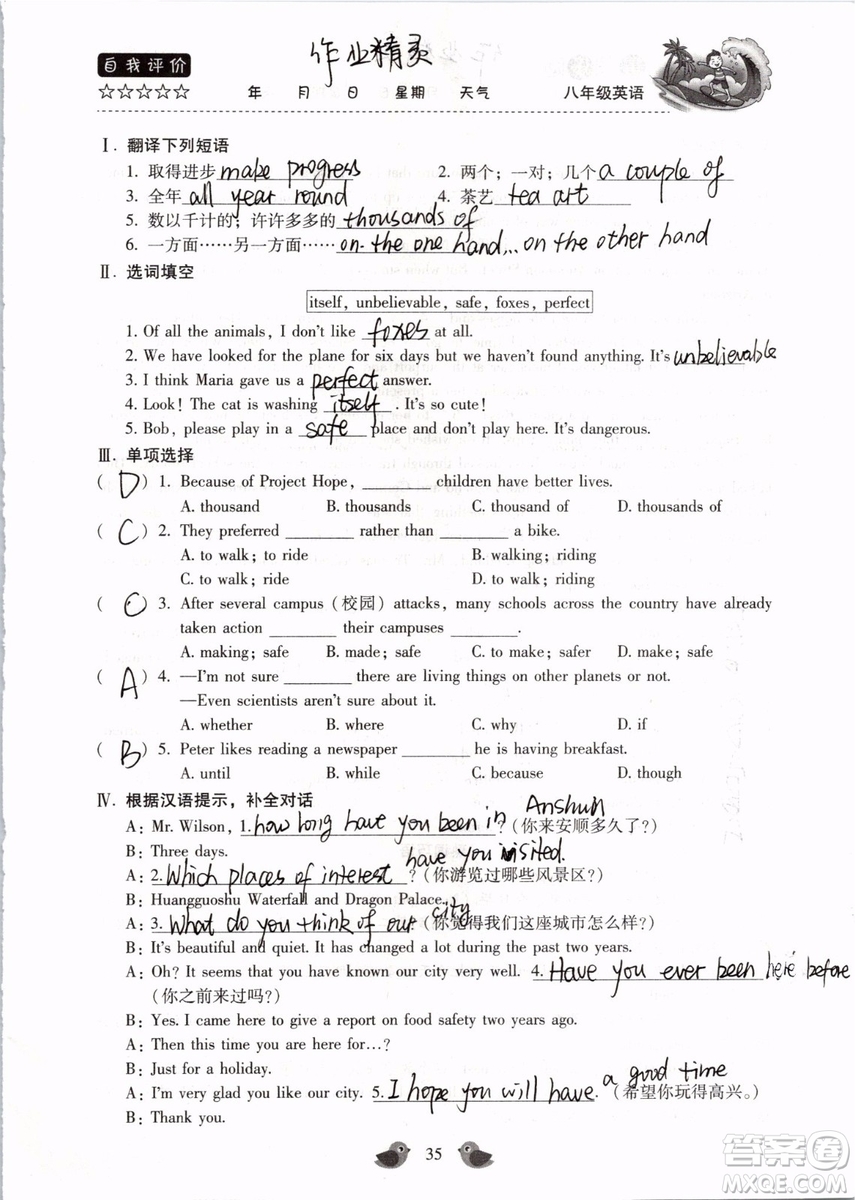 作业精灵
自我评价
☆☆☆☆☆ 年 月 日 星期 天气 八年级英语
Ⅰ. 翻译下列短语
1. 取得进步 make progress 2. 两个；一对；几个 a couple of
3. 全年 all year round 4. 茶艺 tea art
5. 数以千计的；许许多多的 thousands of
6. 一方面……另一方面…… on the one hand... on the other hand
Ⅱ. 选词填空
itself, unbelievable, safe, foxes, perfect
1. Of all the animals, I don't like foxes at all.
2. We have looked for the plane for six days but we haven't found anything. It's unbelievable
3. I think Maria gave us a perfect answer.
4. Look! The cat is washing itself. It's so cute!
5. Bob, please play in a safe place and don't play here. It's dangerous.
Ⅲ. 单项选择
( D ) 1. Because of Project Hope, ________ children have better lives.
A. thousand B. thousands C. thousand of D. thousands of
( C ) 2. They preferred ________ rather than ________ a bike.
A. to walk; to ride B. walking; riding
C. to walk; ride D. to walk; riding
( C ) 3. After several campus (校园) attacks, many schools across the country have already
taken action ________ their campuses ________.
A. making; safe B. made; safe C. to make; safer D. to make; safe
( A ) 4. —I'm not sure ________ there are living things on other planets or not.
—Even scientists aren't sure about it.
A. whether B. where C. why D. if
( B ) 5. Peter likes reading a newspaper ________ he is having breakfast.
A. until B. while C. because D. though
Ⅳ. 根据汉语提示，补全对话
A: Mr. Wilson, 1. how long have you been in Anshun ? (你来安顺多久了?)
B: Three days.
A: 2. Which places of interest have you visited. ? (你游览过哪些风景区?)
B: Huangguoshu Waterfall and Dragon Palace.
A: 3. What do you think of our city (你觉得我们这座城市怎么样?)
B: It's beautiful and quiet. It has changed a lot during the past two years.
A: Oh? It seems that you have known our city very well. 4. Have you ever been here before
(你之前来过吗?)
B: Yes. I came here to give a report on food safety two years ago.
A: Then this time you are here for…?
B: Just for a holiday.
A: I'm very glad you like our city. 5. I hope you will have a good time. (希望你玩得高兴。)
B: Thank you.
35
答案圈
MXQE.COM